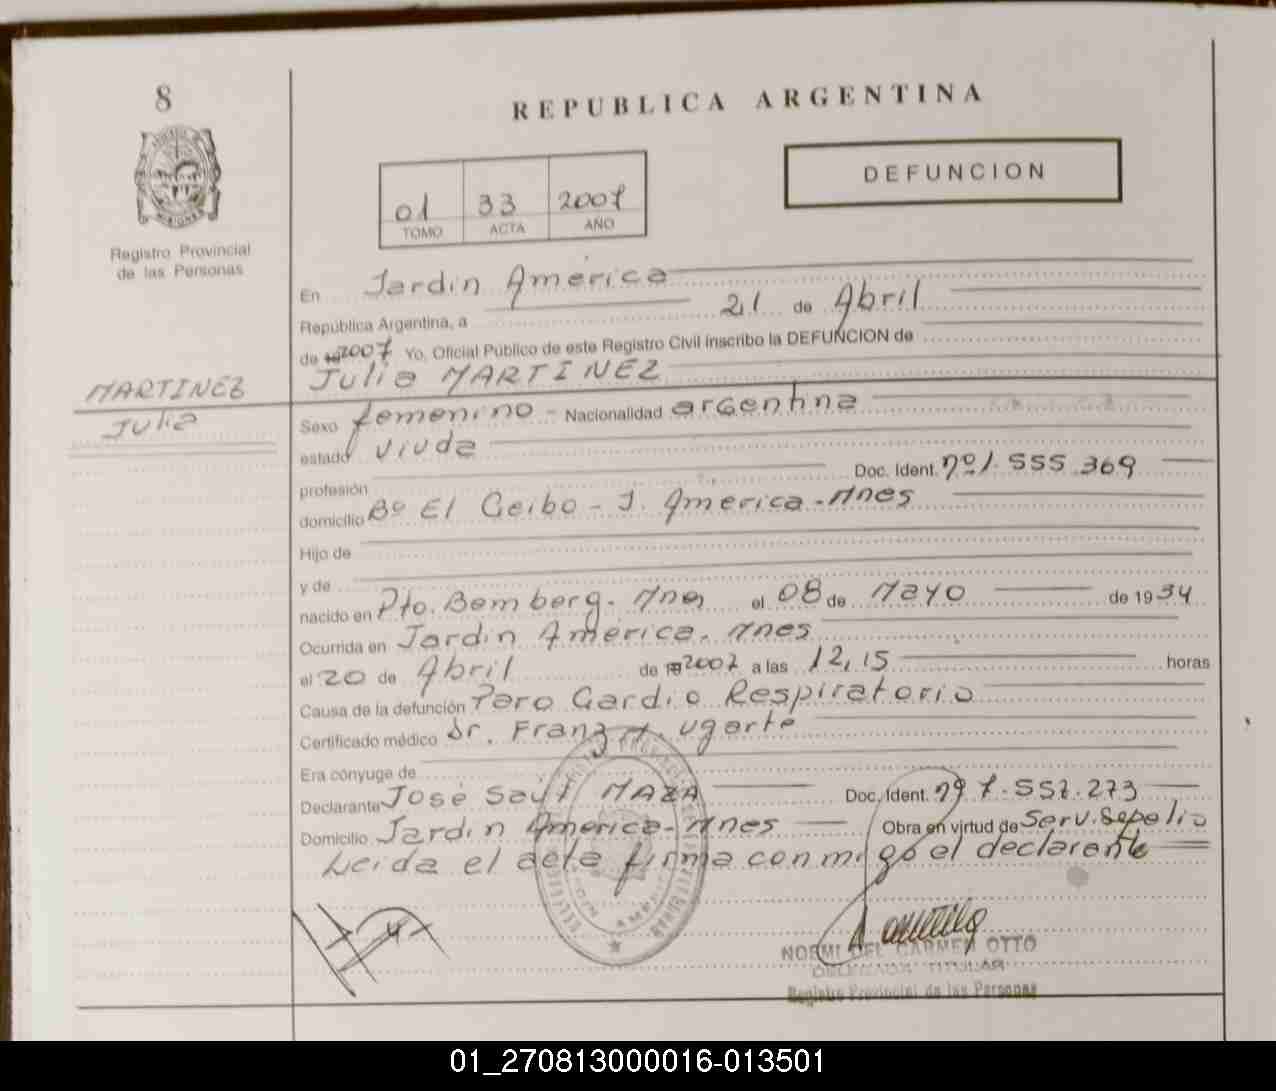 8
REPUBLICA ARGENTINA
DEFUNCION
01 33 2007
TOMO ACTA AÑO
MISIONES
Registro Provincial
de las Personas
En Jardin América
República Argentina, a 21 de Abril
de 19 2007 Yo, Oficial Público de este Registro Civil inscribo la DEFUNCION de
MARTINEZ
Julia
Julia MARTINEZ
Sexo femenino - Nacionalidad argentina
estado viuda
profesión Doc. Ident. nº 1.555.369
domicilio Bº El Ceibo - J. América - Mnes
Hijo de
y de
nacido en Pto. Bemberg. Mnes el 08 de Mayo de 1934
Ocurrida en Jardin América. Mnes
el 20 de Abril de 19 2007 a las 12,15 horas
Causa de la defunción Paro Cardio Respiratorio
Certificado médico Dr. Franz Ugarte
Era cónyuge de
Declarante José Saúl MAZA Doc. Ident. nº 7.552.273
Domicilio Jardin América - Mnes Obra en virtud de Serv. Sepelio
Leida el acta firma conmigo el declarante
NORMI DEL CARMEN OTTO
DELEGADA TITULAR
Registro Provincial de las Personas
01_270813000016-013501